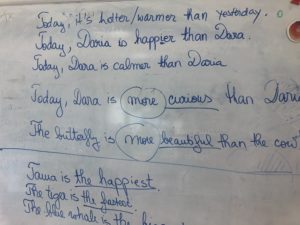 Today, it's hotter/warmer than yesterday.
Today, Daria is happier than Dara.
Today, Dara is calmer than Daria
Today, Dara is more curious than Daria
The butterfly is more beautiful than the cow.
is the happiest.
The is the fastest.
The blue whale is the